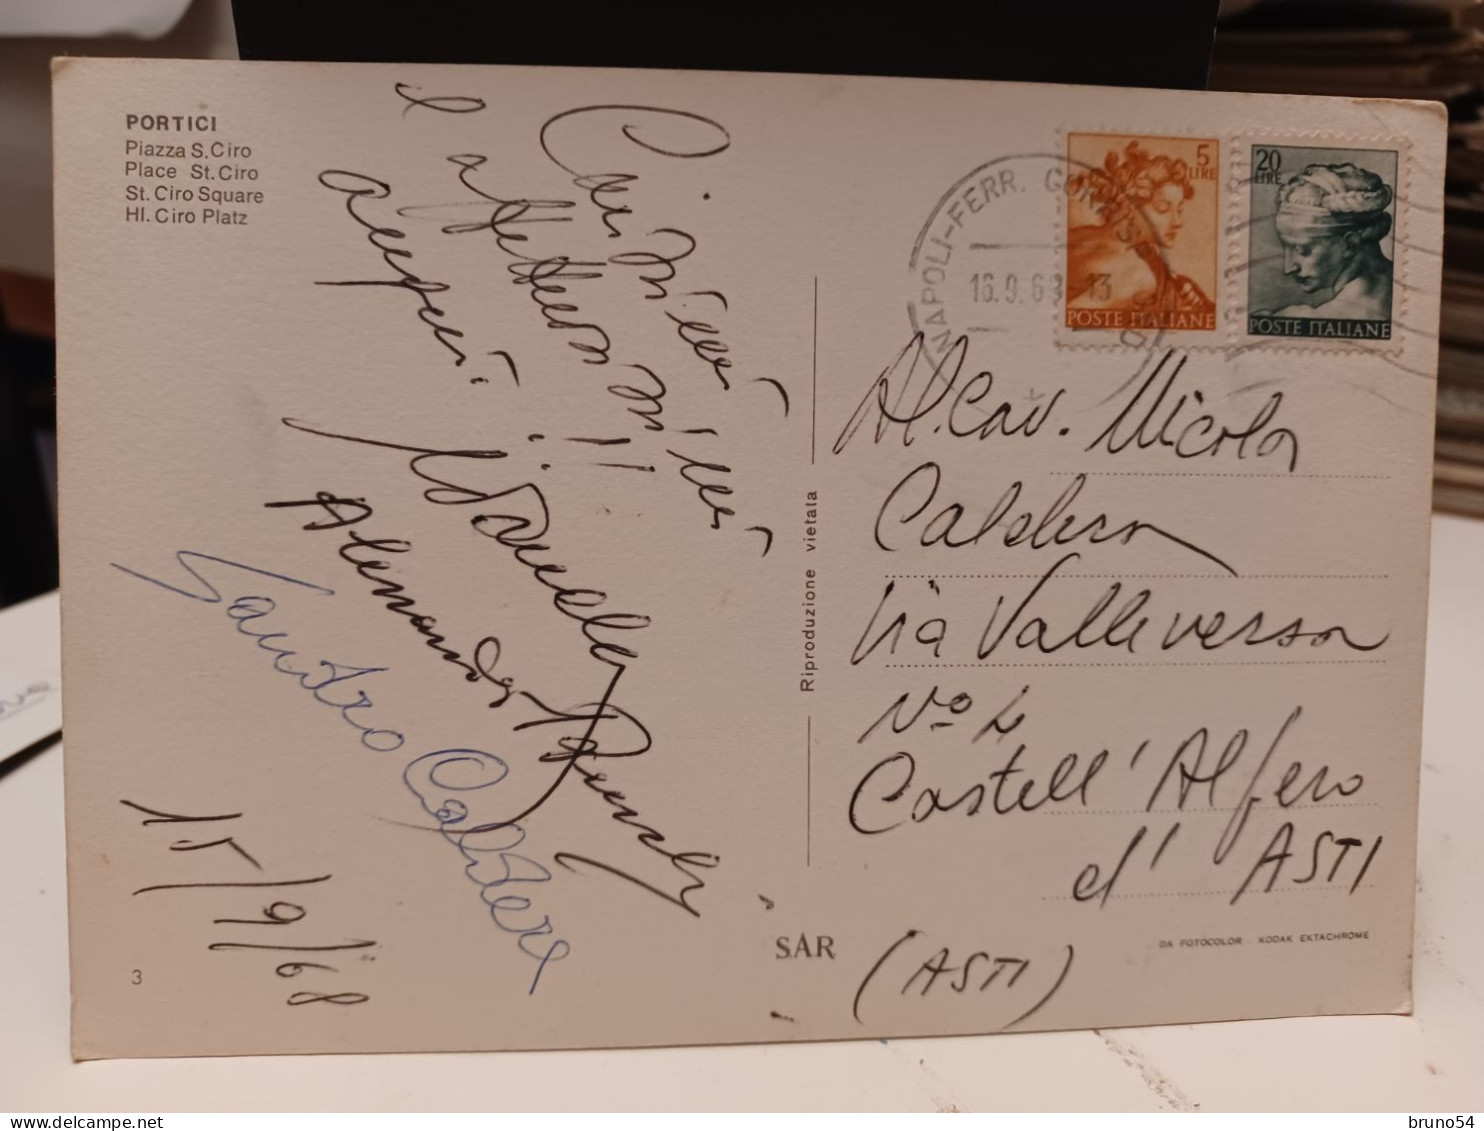 PORTICI
Piazza S. Ciro
Place St. Ciro
St. Ciro Square
Hl. Ciro Platz
Carissimi
e affettuosissimi
auguri.
Alessandro
Santro Caldera
15/9/68
3
Riproduzione vietata
SAR
NAPOLI-FERR.
16.9.68 13
5
LIRE
POSTE ITALIANE
20
LIRE
POSTE ITALIANE
Al Cav. Nicola
Caldera
Via Valleversa
N° 4
Castell'Alfero
d' ASTI
(ASTI)
DA FOTOCOLOR KODAK EKTACHROME
bruno54